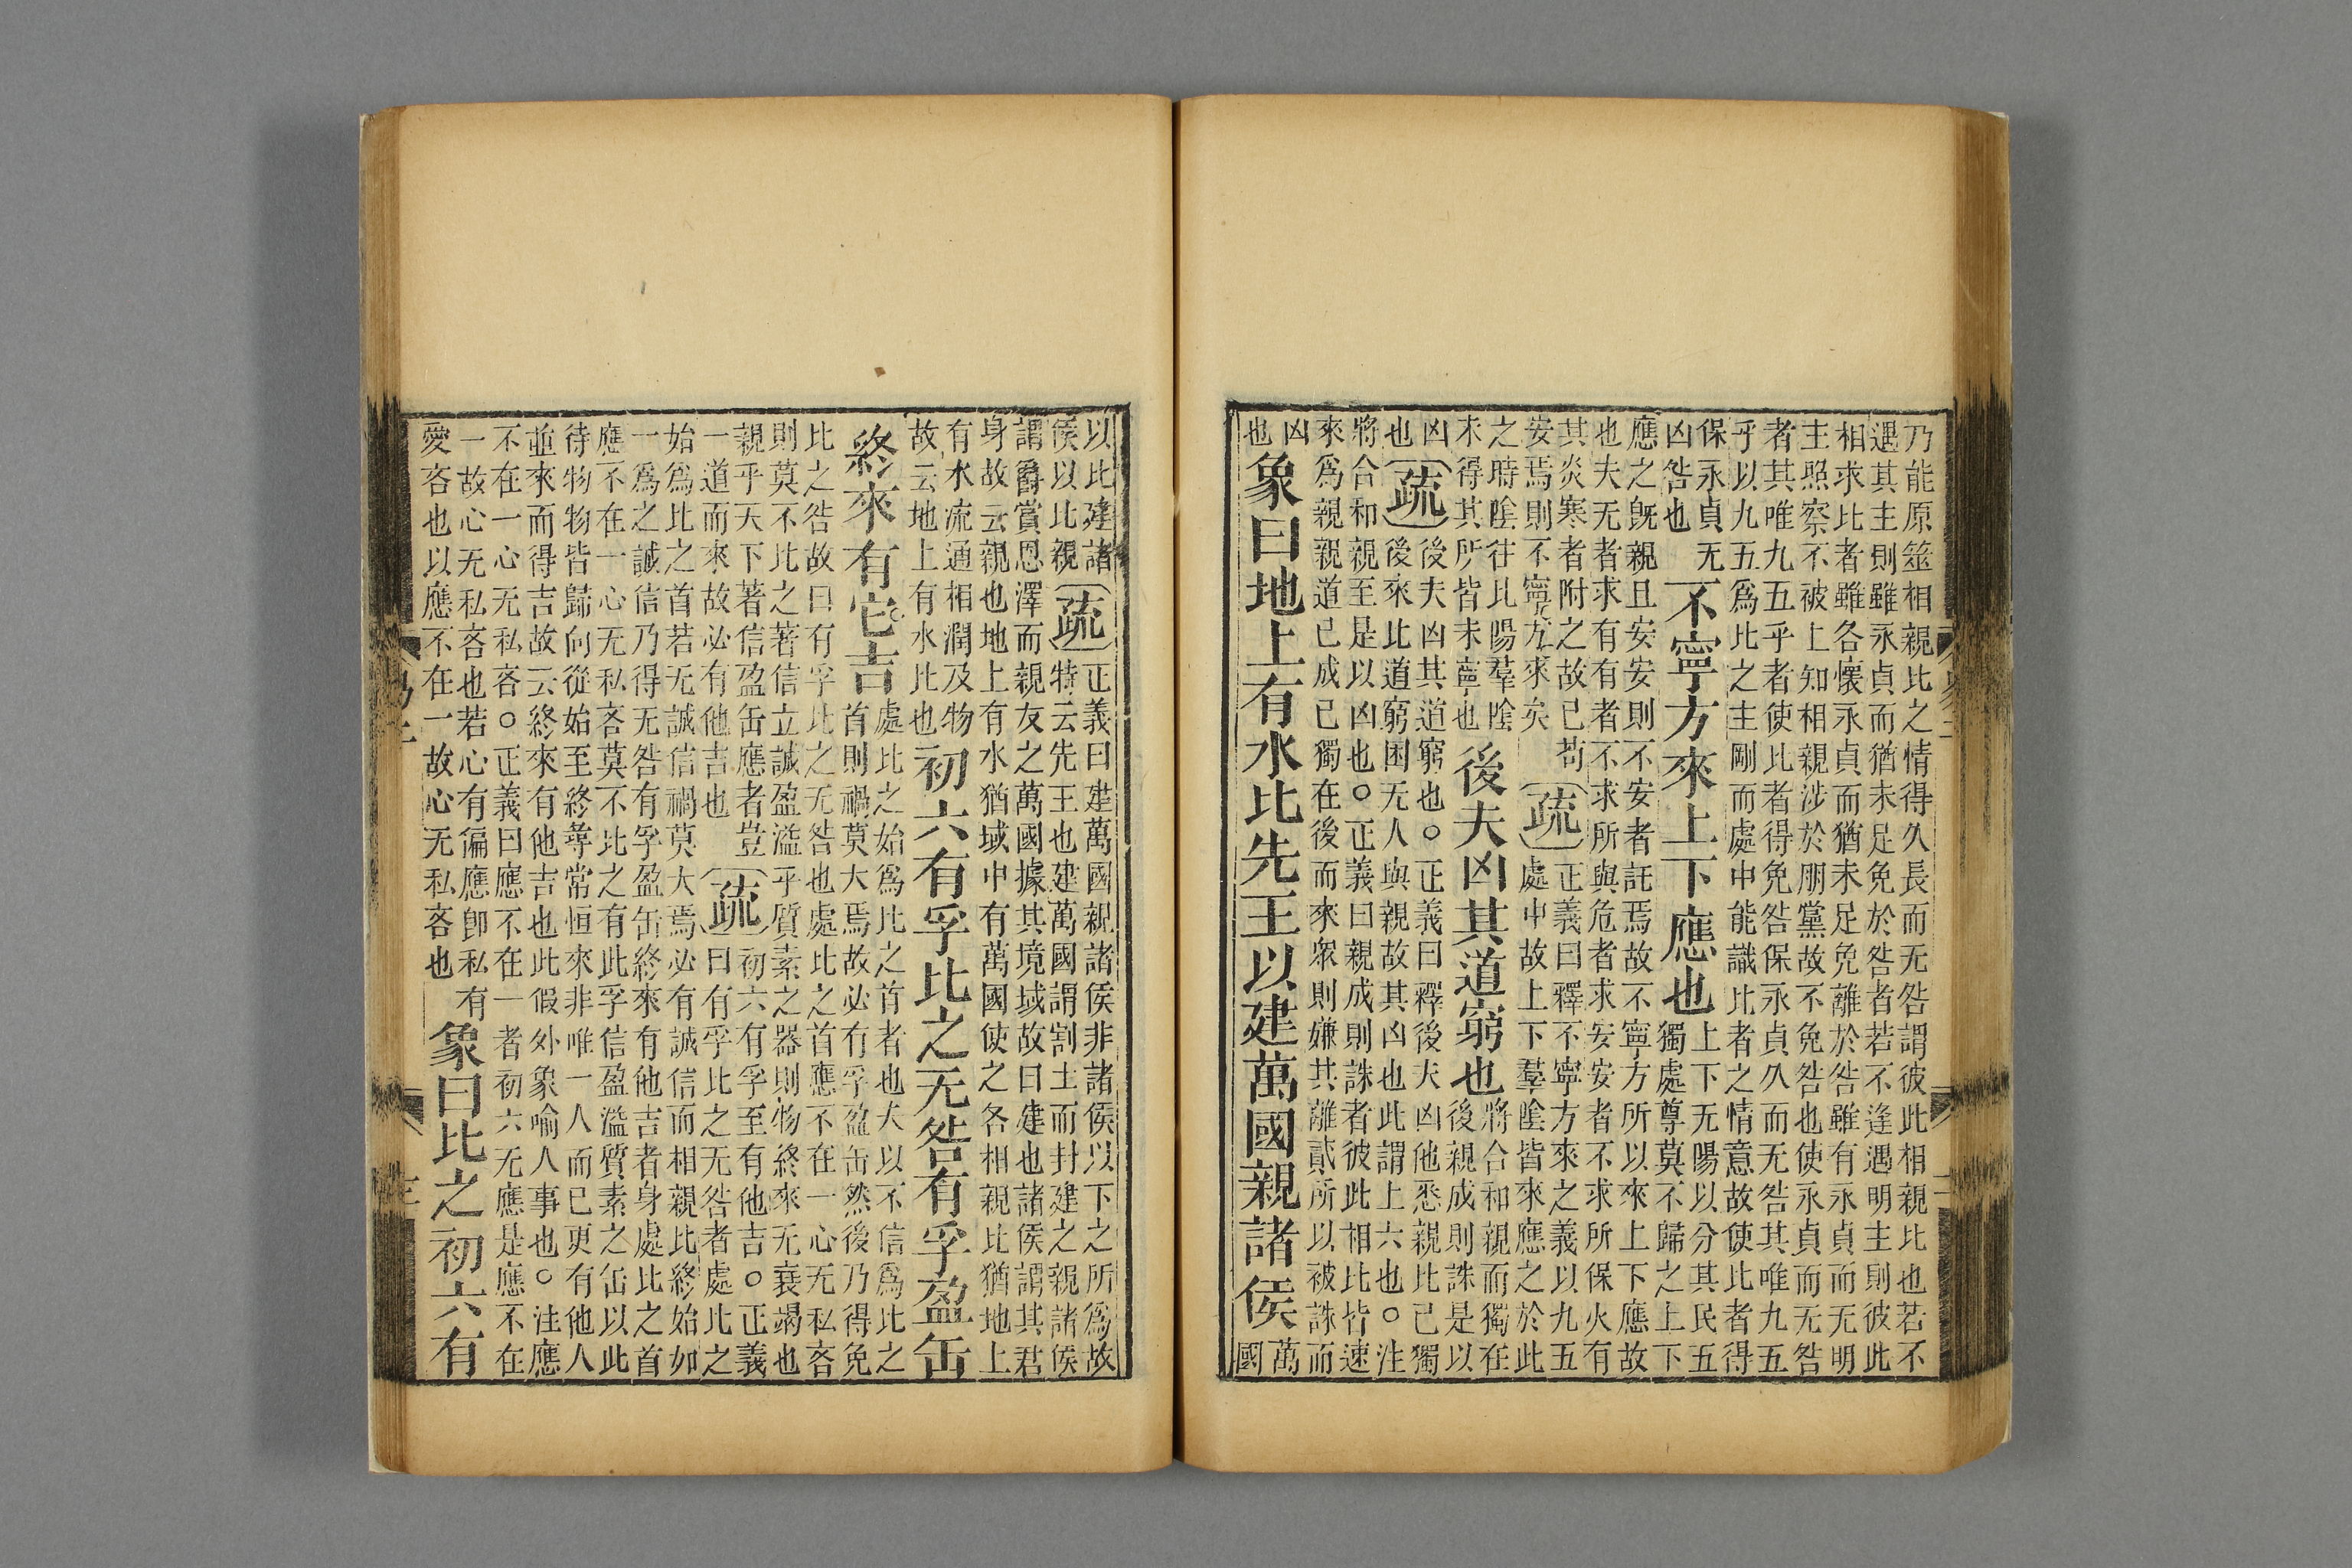 乃能原筮相親比之情得久長而无咎謂彼此相親比也若不
遇其主則雖永貞而猶未足免於咎者若不逢遇明主則彼此
相求比者雖各懷永貞而猶未足免離於咎雖有永貞而无明
主照察不被上知相親涉於朋黨故不免咎也使永貞而无咎
者其唯九五乎者使比者得免咎保永貞久而无咎其唯九五
乎以九五爲比之主剛而處中能識比者之情意故使比者得
保永貞无
凶咎也
不寧方來上下應也
上下无陽以分其民五
獨處尊莫不歸之上下
應之旣親且安安則不安者託焉故不寧方所以來上下應故
也夫无者求有有者不求所與危者求安安者不求所保火有
其炎寒者附之故已苟
安焉則不寧方來矣
疏
正義曰釋不寧方來之義以九五
處中故上下羣陰皆來應之於此
之時陰往比陽羣陰
未得其所皆未寧也
後夫凶其道窮也
將合和親而獨在
後親成則誅是以
凶
也
疏
後夫凶其道窮也○正義曰釋後夫凶他悉親比已獨
後來比道窮困无人與親故其凶也此謂上六也○注
將合和親至是以凶也○正義曰親成則誅者彼此相比皆速
來爲親親道已成已獨在後而來衆則嫌其離貳所以被誅而
凶
也
象曰地上有水比先王以建萬國親諸侯
萬
國
以比建諸
侯以比親
疏
正義曰建萬國親諸侯非諸侯以下之所爲故
特云先王也建萬國謂割土而封建之親諸侯
謂爵賞恩澤而親友之萬國據其境域故曰建也諸侯謂其君
身故云親也地上有水猶域中有萬國使之各相親比猶地上
有水流通相潤及物
故云地上有水比也
初六有孚比之无咎有孚盈缶
終來有它吉
處比之始爲比之首者也夫以不信爲比之
首則禍莫大焉故必有孚盈缶然後乃得免
比之咎故曰有孚比之无咎也處比之首應不在一心无私吝
則莫不比之著信立誠盈溢乎質素之器則物終來无衰竭也
親乎天下著信盈缶應者豈
一道而來故必有他吉也
疏
初六有孚至有他吉○正義
曰有孚比之无咎者處比之
始爲比之首若无誠信禍莫大焉必有誠信而相親比終始如
一爲之誠信乃得无咎有孚盈缶終來有他吉者身處比之首
應不在一心无私吝莫不比之有此孚信盈溢質素之缶以此
待物物皆歸向從始至終尋常恒來非唯一人而已更有他人
並來而得吉故云終來有他吉也此假外象喻人事也○注應
不在一心无私吝○正義曰應不在一者初六无應是應不在
一故心无私吝也若心有偏應卽私有
愛吝也以應不在一故心无私吝也
象曰比之初六有